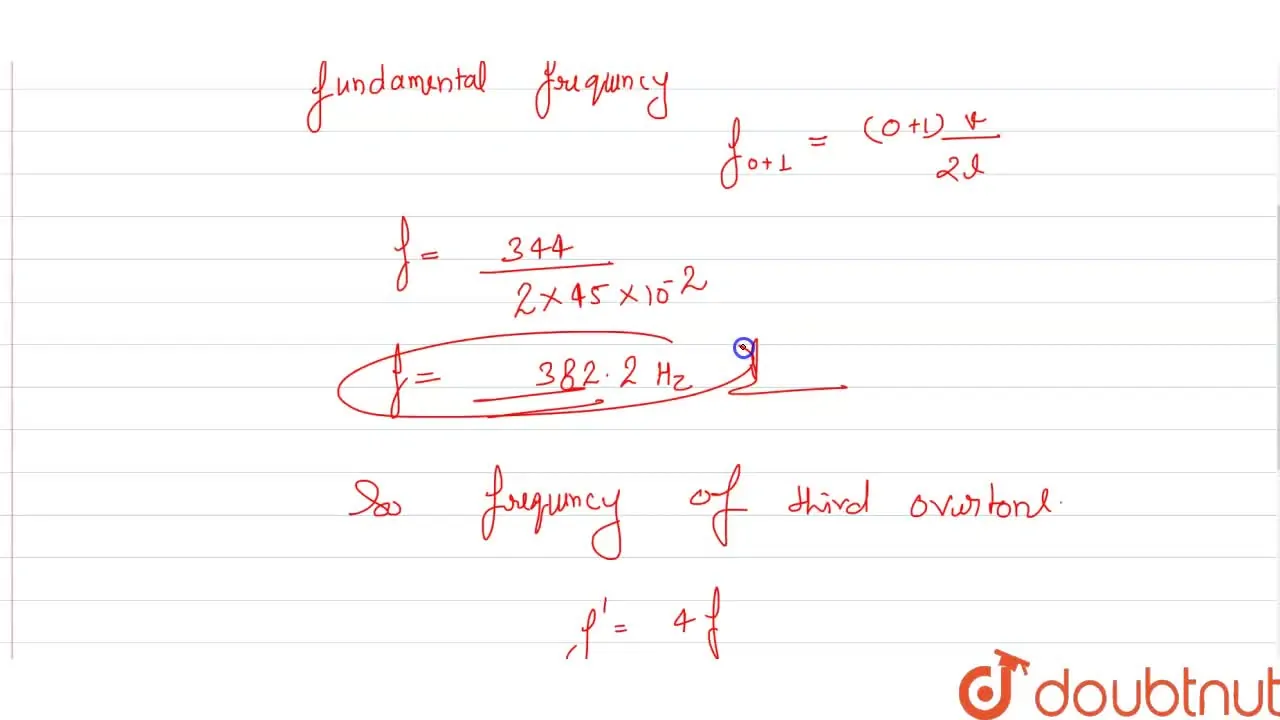 fundamental frequency
f0+1 = (0+1) v / 2l
f = 344 / 2×45×10-2
f = 382.2 Hz
So frequency of third overtone.
f' = 4f
doubtnut